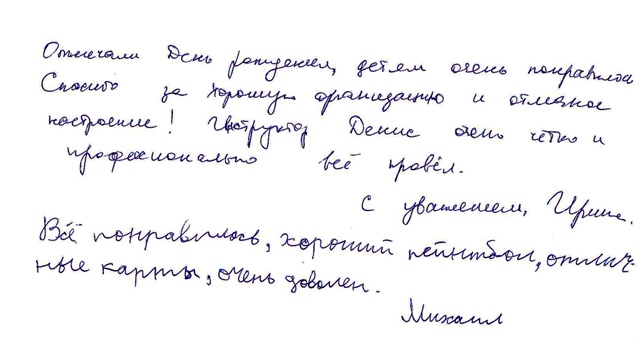 Отмечали День рождения, детям очень понравилось
Спасибо за хорошую организацию и отличное
настроение! Инструктор Денис очень чётко и
профессионально всё провёл.
С уважением, Ирина.
Всё понравилось, хороший пейнтбол, отлич-
ные карты, очень доволен.
Михаил